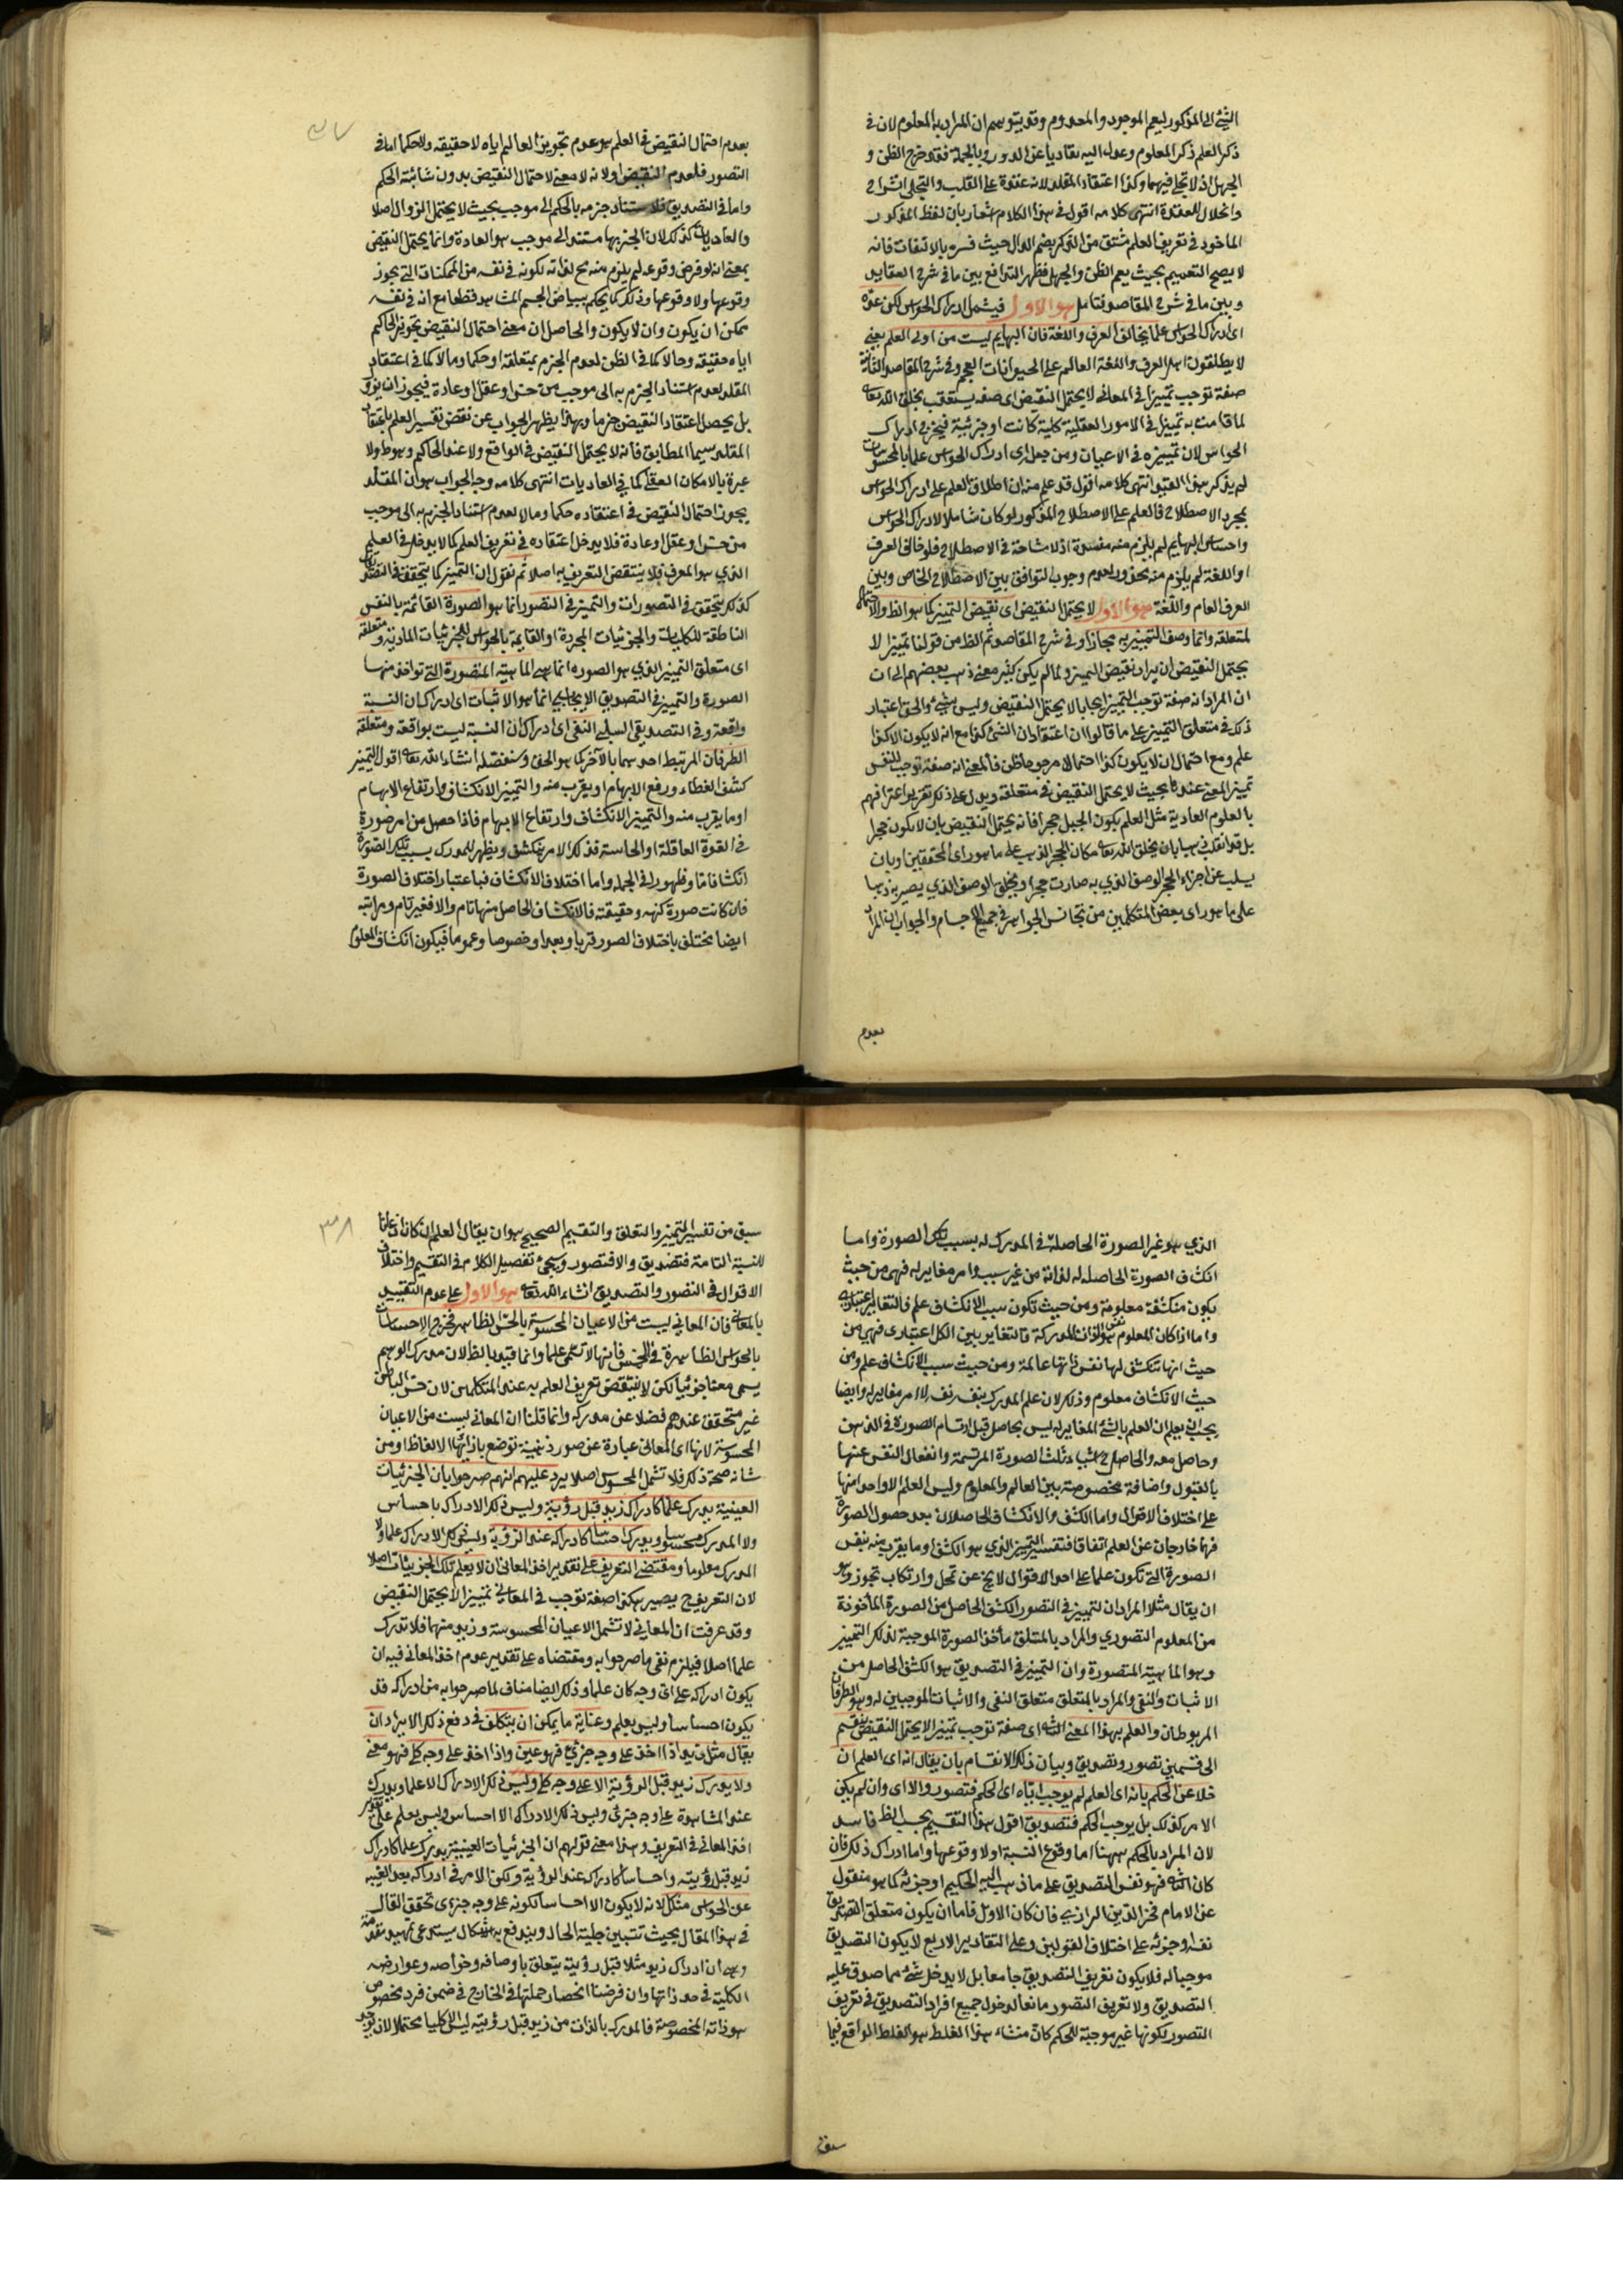 الشئ الى المذكور ليعم الموجود والمعدوم وقد يتوهم ان المراد به المعلوم لان في
ذكر العلم ذكر المعلوم وعدل اليه تفاديا عن الدور وبالجملة فقد خرج الظن و
الجهل اذ لا تجلي فيهما وكذا اعتقاد المقلد لانه عقدة على القلب والتجلي انشراح
وانحلال للعقدة انتهى كلامه اقول في هذا الكلام اشعار بان لفظ المذكور
الماخوذ في تعريف العلم مشتق من الذكر بضم الذال حيث فسره بالالتفات فانه
لا يصح التعميم بحيث يعم الظن والجهل فظهر التدافع بين ما في شرح العقايد
وبين ما في شرح المقاصد فتامل هو الاول فيشمل ادراك الحواس لكن عده
اى ادراك الحواس علما يخالف العرف واللغة فان البهايم ليست من اولى العلم يعني
لا يطلقون اهل العرف واللغة العالم على الحيوانات العجم وفي شرح المقاصد الثانية
صفة توجب تمييزا في المعاني لا يحتمل النقيض اى صفة يستعقب بخلق الله تعالى
لما قامت به تمييزا في الامور العقلية كلية كانت او جزئية فيخرج ادراك
الحواس لان تمييزه في الاعيان ومن جعل اى ادراك الحواس علما بالمحسوسات
لم يذكر هذا القيد انتهى كلامه اقول قد علم منه ان اطلاق العلم على ادراك الحواس
بمجرد الاصطلاح فالعلم على الاصطلاح المذكور لو كان شاملا لادراك الحواس
واحساس البهايم لم يلزم منه مفسدة اذ لا مشاحة في الاصطلاح فلو خالف العرف
او اللغة لم يلزم منه محذور لعدم وجوب التوافق بين الاصطلاح الخاص وبين
العرف العام واللغة هو الاول لا يحتمل النقيض اى نقيض التمييز كما هو الظ والاحتمال
لمتعلقه وانما وصف التمييز به مجازا وفي شرح المقاصد ثم الظ من قولنا تمييزا لا
يحتمل النقيض ان يراد نقيض التمييز ولما لم يكن كثير معنى ذهب بعضهم الى ان
ان المراد انه صفة توجب التمييز ايجابا لا يحتمل النقيض وليس بشئ والحق اعتبار
ذلك في متعلق التمييز على ما قالوا ان اعتقاد ان الشئ كذا مع انه لا يكون الا كذا
علم ومع احتمال ان لا يكون كذا احتمالا مرجوحا ظن فالمعنى انه صفة توجب للنفس
تمييز المعنى عندها بحيث لا يحتمل النقيض في متعلقه ويدل على ذلك تقرير اعترافهم
بالعلوم العادية مثل العلم بكون الجبل حجرا فانه يحتمل النقيض بان لا يكون حجرا
بل قد انقلب ذهبا بان يخلق الله تعالى مكان الحجر الذهب على ما هو راى المحققين او بان
يسلب عن اجزاء الحجر الوصف الذي به صارت حجرا ويخلق الوصف الذي يصير به ذهبا
على ما هو راى بعض المتكلمين من تجانس الجواهر في جميع الاجسام والجواب ان المراد
بعدم
٣٧
بعدم احتمال النقيض في العلم هو عدم تجويز العالم اياه لا حقيقة ولا حكما اما في
التصور فلعدم النقيض اولانه لا معنى لاحتمال النقيض بدون شائبة الحكم
واما في التصديق فلاستناد جزمه بالحكم الى موجب بحيث لا يحتمل الزوال اصلا
والعاديات كذلك لان الجزم بها مستند الى موجب هو العادة وانما يحتمل النقيض
بمعنى انه لو فرض وقوعه لم يلزم منه مح لذاته لكونه في نفسه من الممكنات التي يجوز
وقوعها ولا وقوعها وذلك كما يحكم ببياض الجسم المشاهد قطعا مع انه في نفسه
ممكن ان يكون وان لا يكون والحاصل ان معنى احتمال النقيض تجويز الحاكم
اياه حقيقة وحالا كما في الظن لعدم الجزم بمتعلقه او حكما ومالا كما في اعتقاد
المقلد لعدم استناد الجزم به الى موجب من حس او عقل او عادة فيجوز ان يزول
بل يحصل اعتقاد النقيض جزما وبهذا يظهر الجواب عن نقض تفسير العلم باعتقاد
المقلد سيما المطابق فانه لا يحتمل النقيض في الواقع ولا عند الحاكم وهو ط ولا
عبرة بالامكان العقلي كما في العاديات انتهى كلامه وجه الجواب هو ان المقلد
يجوز احتمال النقيض في اعتقاده حكما ومالا لعدم استناد الجزم به الى موجب
من حس او عقل او عادة فلا يدخل اعتقاده في تعريف العلم كما لا يدخل في العلم
الذي هو المعرف فلا ينتقض التعريف به اصلا ثم نقول ان التمييز كما يتحقق في التصديقات
كذلك يتحقق في التصورات والتمييز في التصور انما هو الصورة القائمة بالنفس
الناطقة للكليات والجزئيات المجردة او القايمة بالحواس للجزئيات المادية ومتعلقه
اى متعلق التمييز الذي هو الصورة انما هو الماهية المتصورة التي توافق منها
الصورة والتمييز في التصديق الايجابي انما هو الاثبات اى ادراك ان النسبة
واقعة وفي التصديق السلبي النفى اى ادراك ان النسبة ليست بواقعة ومتعلقه
الطرفان المرتبط احدهما بالآخر كما هو الحق وسنفصله انشاء الله تعالى اقول التمييز
كشف الغطاء ورفع الابهام او يقرب منه والتمييز الانكشاف وارتفاع الابهام
او ما يقرب منه والتمييز الانكشاف وارتفاع الابهام فاذا حصل من امر صورة
في القوة العاقلة او الحاسة فذلك الامر ينكشف ويظهر للمدرك بسبب تلك الصورة
انكشافا ما وظهورا في الجملة واما اختلاف الانكشاف فباعتبار اختلاف الصورة
فان كانت صورة كنهه وحقيقته فالانكشاف الحاصل منها تام والا فغير تام ومراتبه
ايضا يختلف باختلاف الصور قربا وبعدا وخصوصا وعموما فيكون انكشاف المعلوم
الذي هو غير الصورة الحاصلة في المدرك له بسبب تلك الصورة واما
انكشاف الصورة الحاصلة له لذاته من غير سبب وامر مغاير له فهى من حيث
يكون منكشفة معلومة ومن حيث تكون سبب الانكشاف علم فالتغاير اعتبارى
واما اذا كان المعلوم نفس الذات المدركة فالتغاير بين الكل اعتبارى فهى من
حيث انها تنكشف لها نفس ذاتها عالمة ومن حيث سبب الانكشاف علم ومن
حيث الانكشاف معلوم وذلك لان علم المدرك بنفسه نفسه لا امر مغاير له وايضا
يجب ان يعلم ان العلم بالشئ المغاير له ليس بحاصل قبل ارتسام الصورة في الذهن
وحاصل معه والحاصل ح اشياء ثلث الصورة المرتسمة وانفعال النفس عنها
بالقبول واضافة مخصوصة بين العالم والمعلوم وليس العلم الا واحدا منها
على اختلاف الاقوال واما الكشف والانكشاف الحاصلان بعد حصول الصورة
فهما خارجان عن العلم اتفاقا فتفسير التمييز الذي هو الكشف وما يقرب منه بنفس
الصورة التي تكون علما على احد الاقوال لا يخ عن تمحل وارتكاب تجوز وهو
ان يقال مثلا المراد ان التمييز في التصور الكشف الحاصل من الصورة المأخوذة
من المعلوم التصوري والمراد بالمتعلق مأخذ الصورة الموجبة لذلك التمييز
وهو الماهية المتصورة وان التمييز في التصديق هو الكشف الحاصل من
الاثبات والنفى والمراد بالمتعلق متعلق النفى والاثبات الموجبين له وهو الطرفان
المربوطان والعلم بهذا المعنى الثانى اى صفة توجب تمييزا لا يحتمل النقيض ينقسم
الى قسمين تصور وتصديق وبيان ذلك الانقسام بان يقال انه اى العلم ان
خلا عن الحكم بانه اى العلم لم يوجب اياه اى الحكم فتصور والا اى وان لم يكن
الامر كذلك بل يوجب الحكم فتصديق اقول هذا التقسيم بحسب الظ فاسد
لان المراد بالحكم ههنا اما وقوع النسبة او لا وقوعها واما ادراك ذلك فان
كان الثانى فهو نفس التصديق على ما ذهب اليه الحكيم او جزئه كما هو منقول
عن الامام فخر الدين الرازي فان كان الاول فاما ان يكون متعلق التصديق
نفسه او جزئه على اختلاف القولين وعلى التقادير الاربع لا يكون التصديق
موجبا له فلا يكون تعريف التصديق جامعا بل لا يدخل شئ مما صدق عليه
التصديق ولا تعريف التصور مانعا لدخول جميع افراد التصديق في تعريف
التصور لكونها غير موجبة للحكم كان منشاء هذا الغلط هو الغلط الواقع فيما
سبق
٣٨
سبق من تفسير التمييز والتعلق والتقسيم الصحيح هو ان يقال العلم ان كان اذعانا
للنسبة التامة فتصديق والا فتصور وسيجئ تفصيل الكلام في التقسيم واختلاف
الاقوال في التصور والتصديق انشاء الله تعالى هو الاول على عدم التقييد
بالمعاني فان المعاني ليست من الاعيان المحسوسة بالحس الظاهر فخرج الاحساسات
بالحواس الظاهرة في الخمس فانها لا تسمى علما وانما قيد بالظ لان مدرك الوهم
يسمى معنا جزئيا لكن لا ينتقض تعريف العلم به عند المتكلمين لان حس الباطن
غير متحقق عندهم فضلا عن مدركه وانما قلنا ان المعاني ليست من الاعيان
المحسوسة لانها اى المعانى عبارة عن صور ذهنية توضع بازائها الالفاظ او من
شانه صحة ذلك فلا تشمل المحسوس اصلا يرد عليهم انهم صرحوا بان الجزئيات
العينية يدرك علما كادراك زيد قبل رؤيته وليس ذلك الادراك باحساس
ولا المدرك محسوسا ويدرك احساسا كادراكه عند الرؤية وليس ذلك الادراك علما ولا
المدرك معلوما ومقتضى التعريف على تقدير اخذ المعاني ان لا يعلم تلك الجزئيات اصلا
لان التعريف ح يصير هكذا صفة توجب في المعاني تمييزا لا يحتمل النقيض
وقد عرفت ان المعاني لا تشمل الاعيان المحسوسة وزيد منها فلا تدرك
علما اصلا فيلزم نفى ما صرحوا به ومقتضاه على تقدير عدم اخذ المعاني فيه ان
يكون ادراكه على اى وجه كان علما وذلك ايضا مناف لما صرحوا به من ادراكه قد
يكون احساسا وليس بعلم وغاية ما يمكن ان يتكلف في دفع ذلك الايراد ان
يقال مثلا زيد اذا اخذ على وجه جزئي فهو عين واذا اخذ على وجه كلي فهو معنى
ولا يدرك زيد قبل الرؤية الا على وجه كلي وليس ذلك الادراك الا علما ويدرك
عند المشاهدة على وجه جزئى وليس ذلك الادراك الا احساس وليس بعلم على تقدير
اخذ المعاني في التعريف وهذا معنى قولهم ان الجزئيات العينية يدرك علما كادراك
زيد قبل رؤيته واحساسا كادراكه عند الرؤية ولكن الامر في ادراكه بعد الغيبة
عن الحواس مشكل لانه لا يكون الا احساسا لكونه على وجه جزئى تحقق القال
في هذا المقال بحيث تتبين جلية الحال ويندفع به الاشكال يستدعي تمهيد مقدمة
وهى ان ادراك زيد مثلا قبل رؤيته يتعلق باوصافه وخواصه وعوارضه
الكلية في حد ذاتها وان فرضنا انحصار جملتها في الخارج في ضمن فرد مخصوص
هو ذاته المخصوصة فالمدرك بالذات من زيد قبل رؤيته ليس الا كليا محتملا لان يوجد